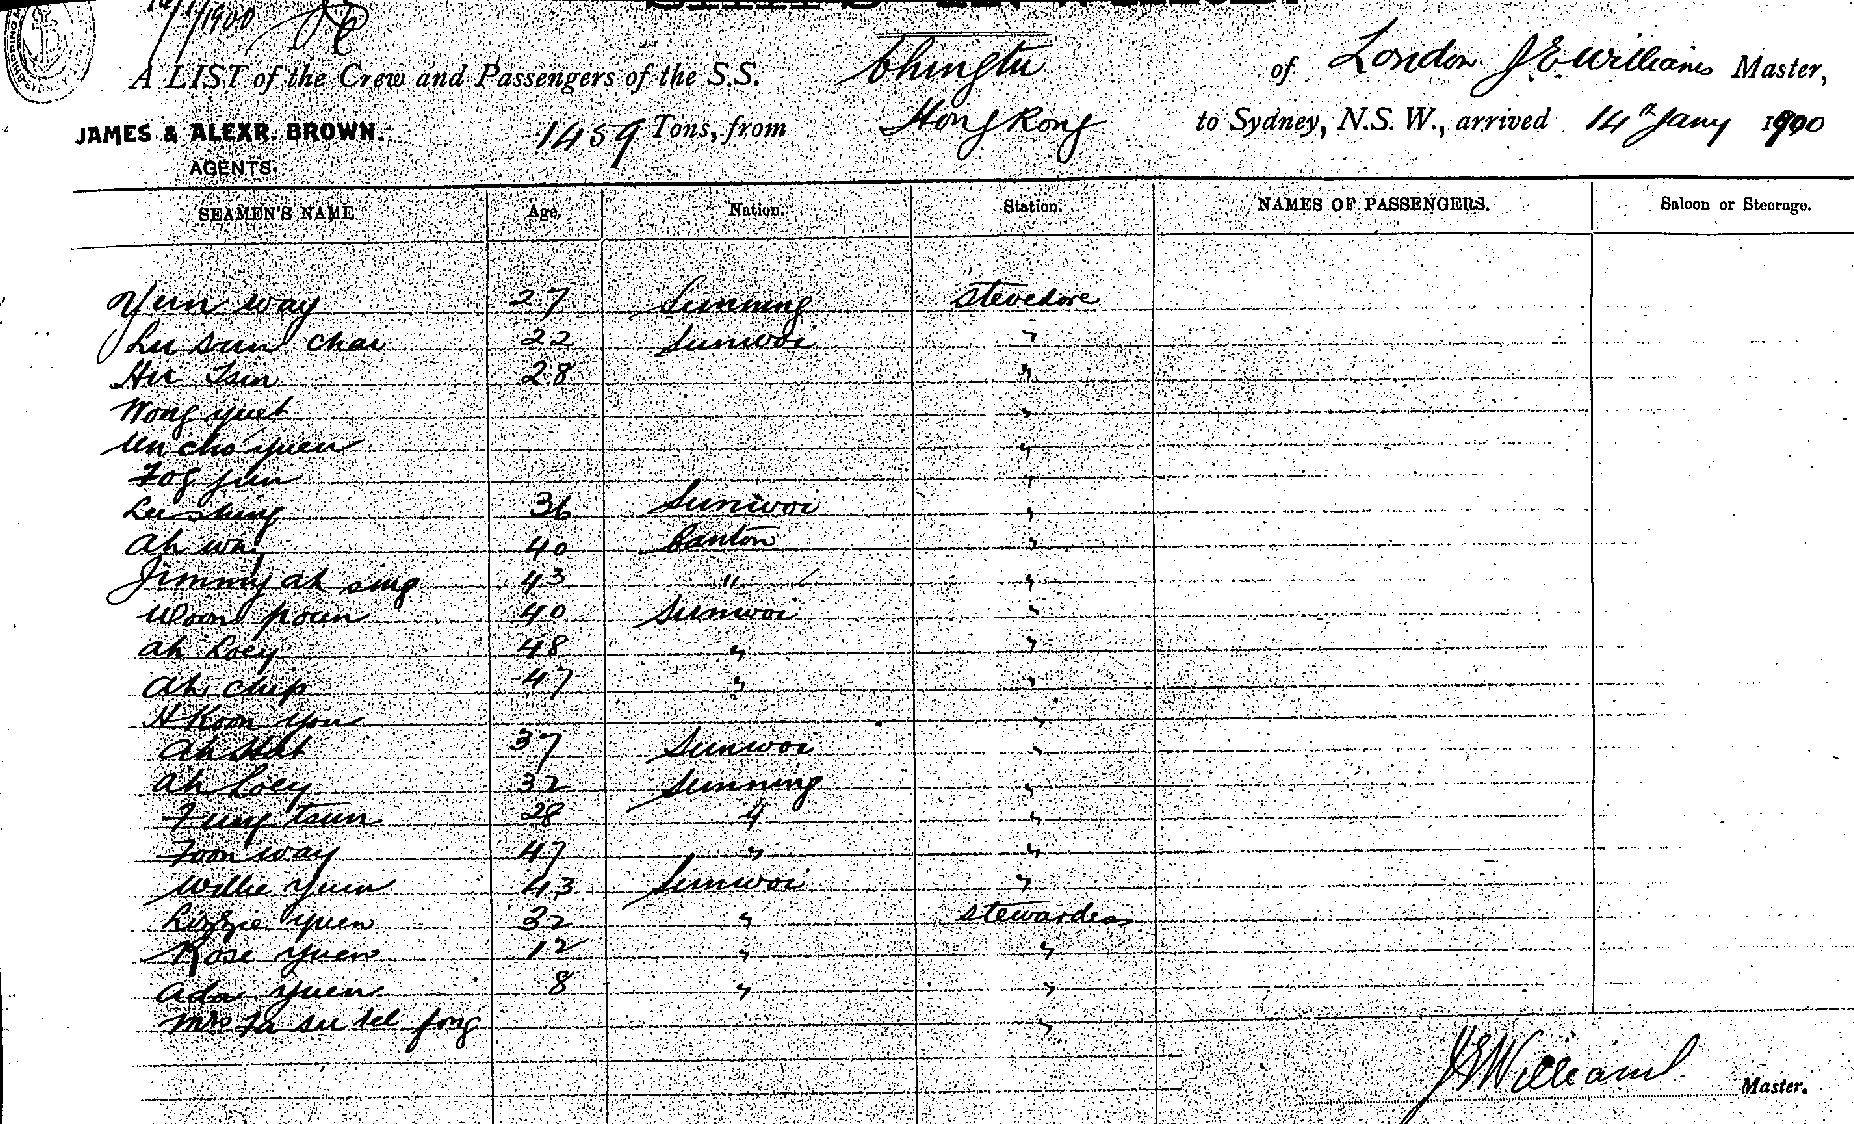 /1/1900
A LIST of the Crew and Passengers of the S.S. Chingtu of London J E Williams Master,
JAMES & ALEXR. BROWN.
AGENTS.
1459 Tons, from Hong Kong to Sydney, N.S.W., arrived 14th Jany 1900
SEAMEN'S NAME Age. Nation. Station. NAMES OF PASSENGERS. Saloon or Steerage.
Yun way 27 Sunning stevedore
Lu Sun Chai 22 Sunwoi "
Hu Tsin 28 "
Wong yuet "
Un cho yuen "
Fog Jun "
Lu Shing 36 Suniwoi "
Ah wa 40 Canton "
Jimmy ah sing 43 " "
Woon poun 40 Sunwoi "
Ah Loey 48 " "
Ah chip 47 " "
A Koon You "
Ah 37 Sunwoi "
Ah Loey 32 Sunning "
Fung tsun 28 " "
Foon way 47 " "
Willie Yuen 43 Sunwoi "
Lizzie Yuen 32 " stewardess
Rose Yuen 12 " "
Ada Yuen 8 " "
Mrs fong "
J E Williams Master.